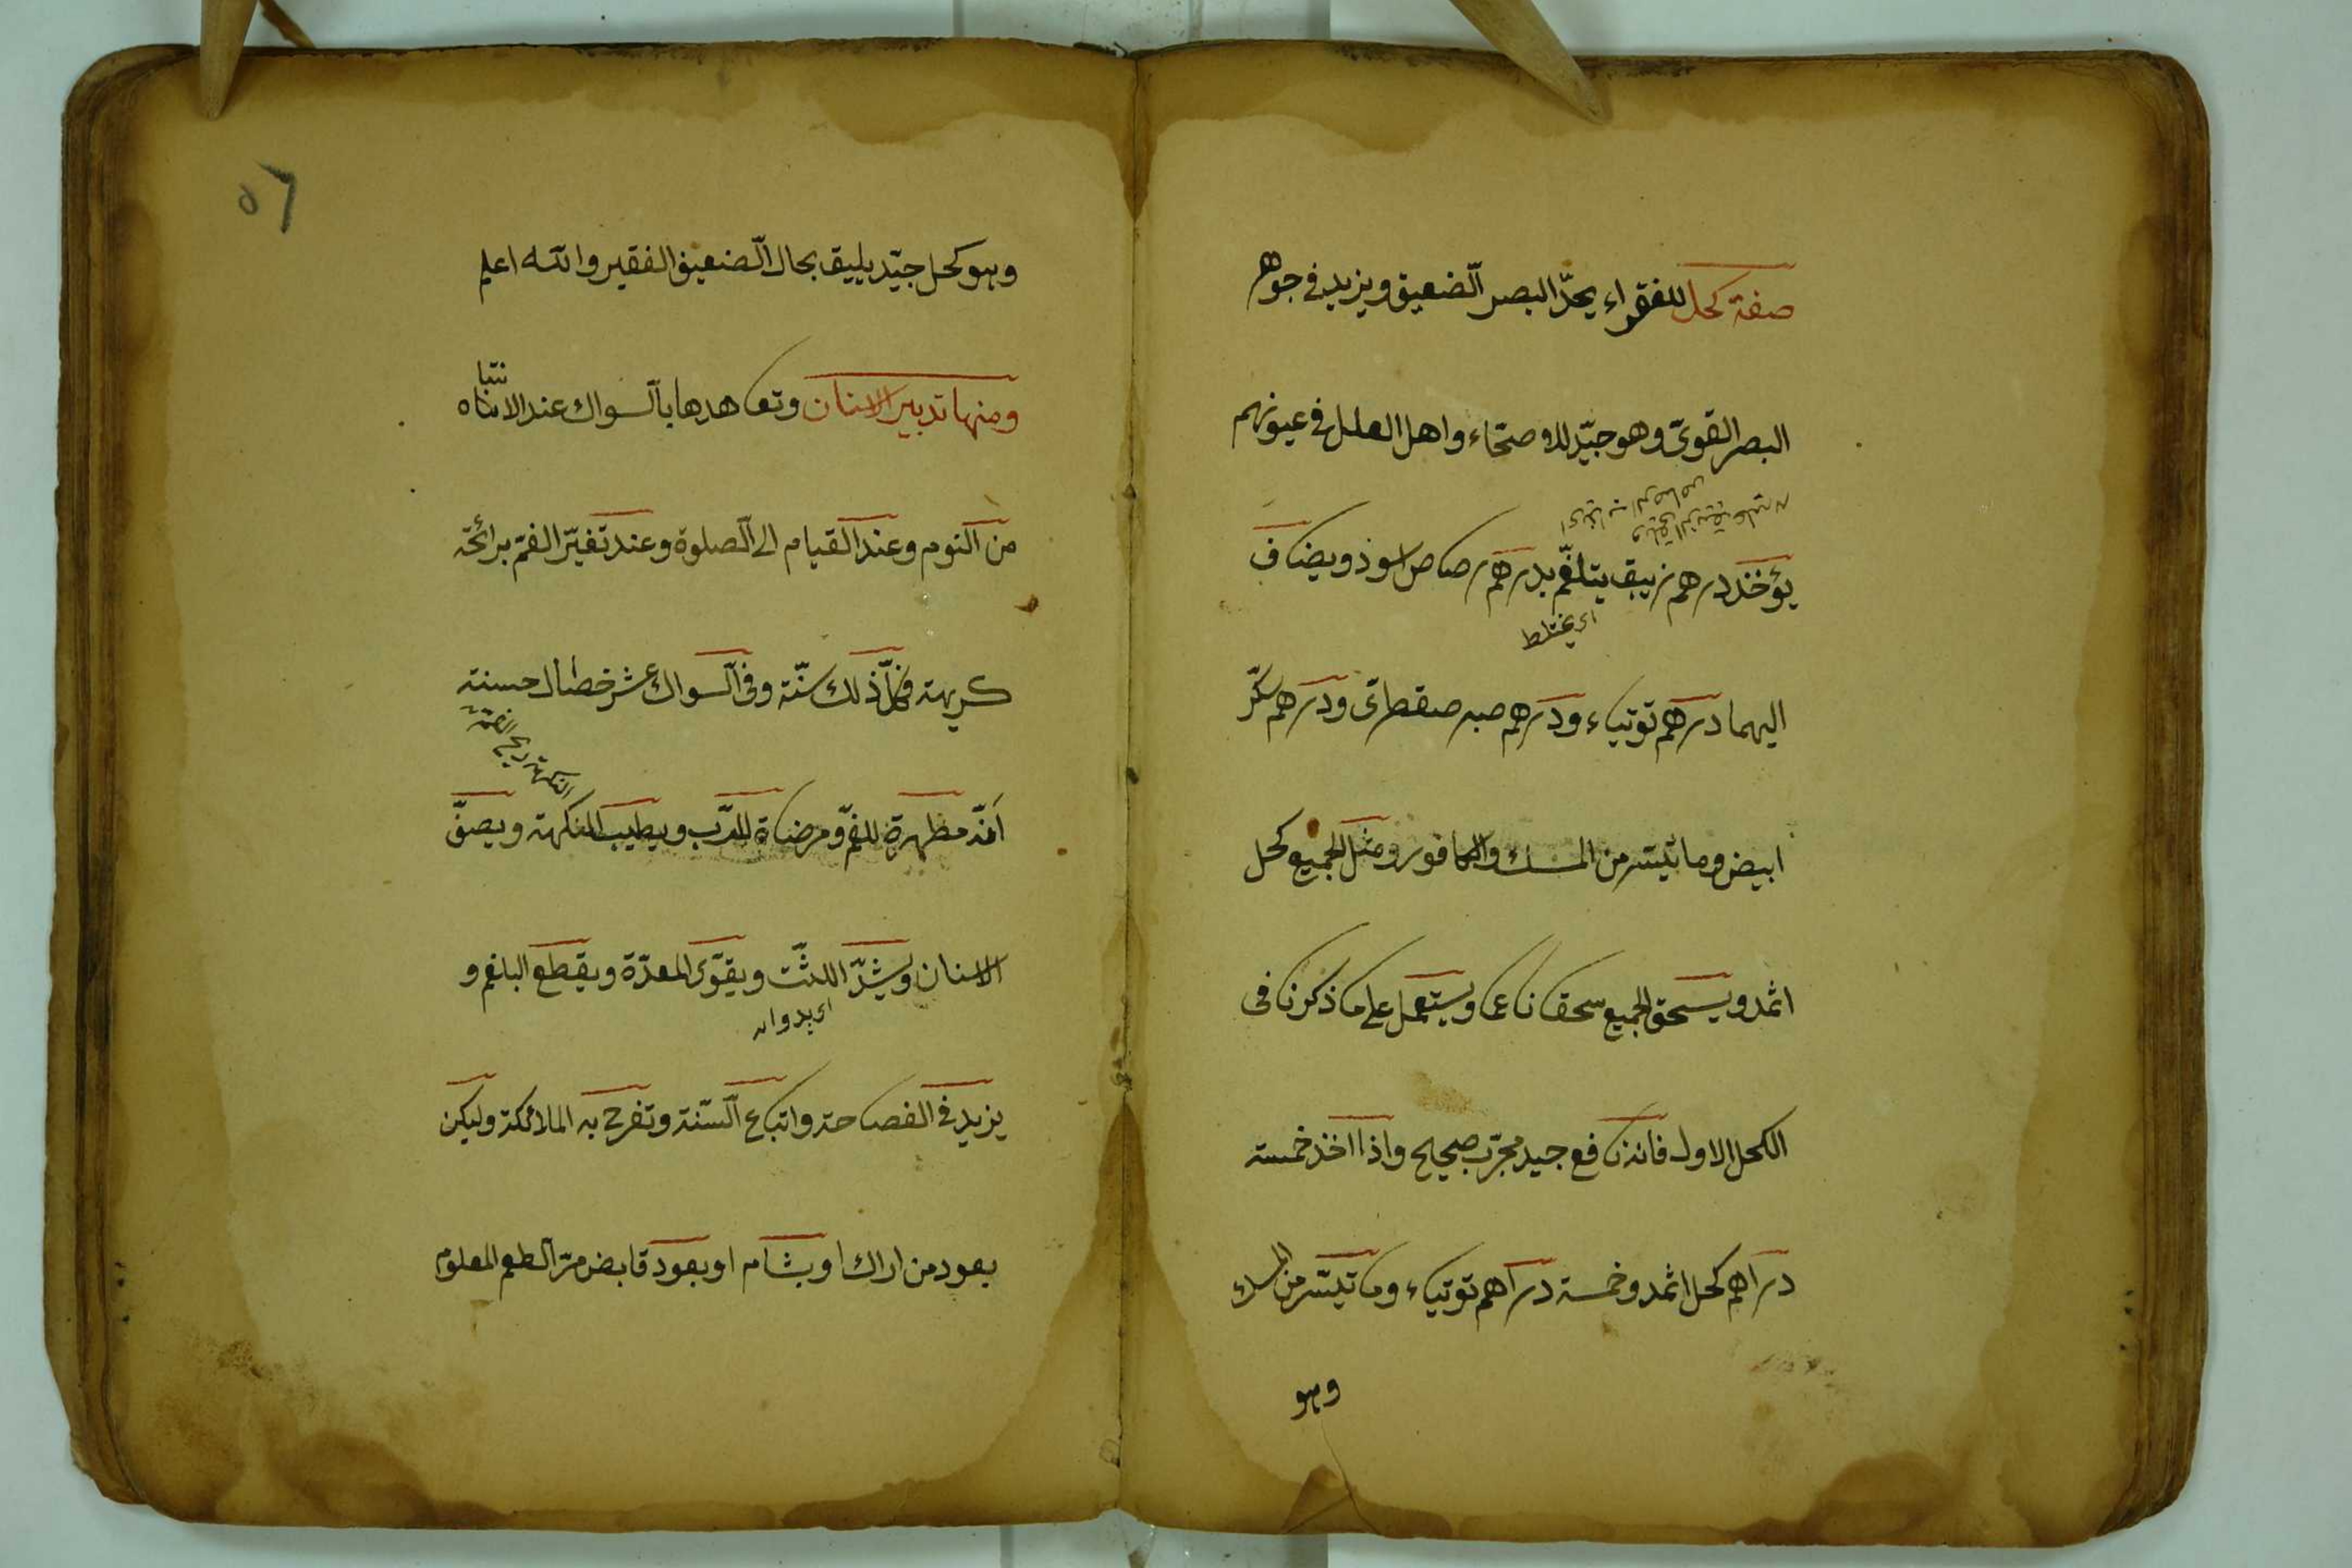 صفة كحل للفقراء يحدّ البصر الضعيف ويزيد في جوهر
البصر القوىّ وهو جيّد للاصحّاء واهل العلل في عيونهم
يؤخذ درهم زيبق يتلغّم بدرهم رصاص اسود ويضاف
اى يختلط
اليهما درهم توتياء ودرهم صبر صقطرى ودرهم سكّر
ابيض وما تيسّر من المسك والكافور ومثل الجميع كحل
اثمد ويسحق الجميع سحقا ناعما ويستعمل على ما ذكرنا فى
الكحل الاول فانه نافع جيد مجرّب صحيح واذا اخذ خمسة
دراهم كحل اثمد وخمسة دراهم توتياء وما تيسّر من المسك
وهو
٥٦
وهو كحل جيّد يليق بحال الضعيف الفقير والله اعلم
ومنها تدبير الاسنان وتعاهدها بالسواك عند الانتباه
نتبا
من النوم وعند القيام الى الصلوة وعند تغيّر الفمّ برائحة
كريهة فكلّ ذلك سنّة وفى السواك عشر خصال حسنة
النكهة ريح الفمّ
انّه مطهرة للفمّ ومرضاة للرّب ويطيب النكهة ويصفّى
الاسنان ويشدّ اللثّة ويقوّى المعدّة ويقطع البلغم و
يزيد فى الفصاحة واتباع السّنة وتفرح به الملائكة وليكن
بعود من اراك او بشام او بعود قابض مرّ الطعم المعلوم